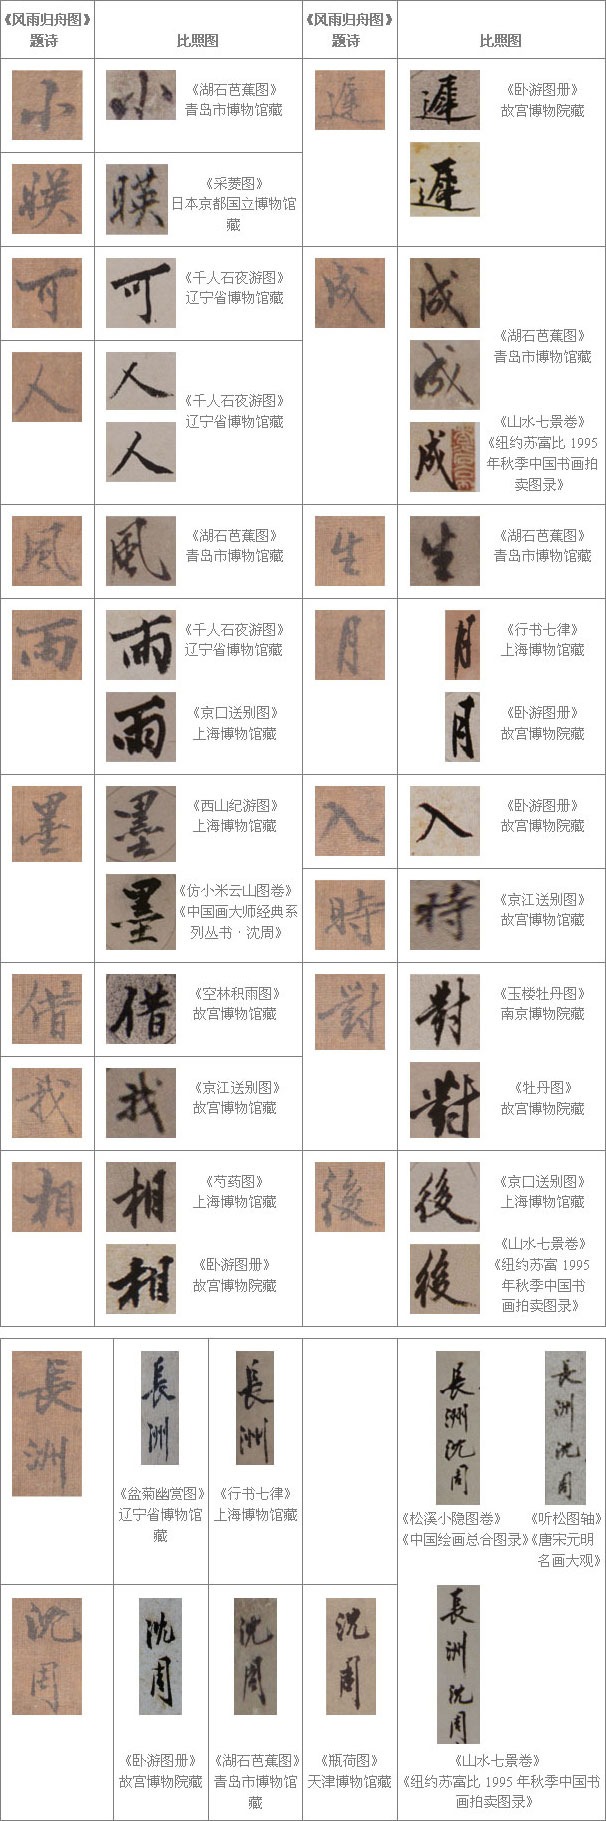 《风雨归舟图》
题诗
比照图
《风雨归舟图》
题诗
比照图
小
小
《湖石芭蕉图》
青岛市博物馆藏
遲
遲
遲
《卧游图册》
故宫博物院藏
暎
暎
《采菱图》
日本京都国立博物馆
藏
可
可
《千人石夜游图》
辽宁省博物馆藏
成
成
成
成
《湖石芭蕉图》
青岛市博物馆藏
《山水七景卷》
《纽约苏富比 1995
年秋季中国书画拍
卖图录》
人
人
人
《千人石夜游图》
辽宁省博物馆藏
風
風
《湖石芭蕉图》
青岛市博物馆藏
生
生
《湖石芭蕉图》
青岛市博物馆藏
雨
雨
雨
《千人石夜游图》
辽宁省博物馆藏
《京口送别图》
上海博物馆藏
月
月
月
《行书七律》
上海博物馆藏
《卧游图册》
故宫博物院藏
墨
墨
墨
《西山纪游图》
上海博物馆藏
《仿小米云山图卷》
《中国画大师经典系
列丛书·沈周》
入
入
《卧游图册》
故宫博物院藏
時
時
《京江送别图》
故宫博物馆藏
借
借
《空林积雨图》
故宫博物馆藏
對
對
對
《玉楼牡丹图》
南京博物院藏
《牡丹图》
故宫博物院藏
我
我
《京江送别图》
故宫博物馆藏
相
相
相
《芍药图》
上海博物馆藏
《卧游图册》
故宫博物院藏
後
後
後
《京口送别图》
上海博物馆藏
《山水七景卷》
《纽约苏富 1995
年秋季中国书
画拍卖图录》
長洲
長洲
《盆菊幽赏图》
辽宁省博物馆
藏
長洲
《行书七律》
上海博物馆藏
長洲沈周
《松溪小隐图卷》
《中国绘画总合图录》
長洲沈周
《听松图轴》
《唐宋元明
名画大观》
沈周
沈周
《卧游图册》
故宫博物院藏
沈周
《湖石芭蕉图》
青岛市博物馆
藏
沈周
《瓶荷图》
天津博物馆藏
長洲沈周
《山水七景卷》
《纽约苏富比 1995 年秋季中国书
画拍卖图录》